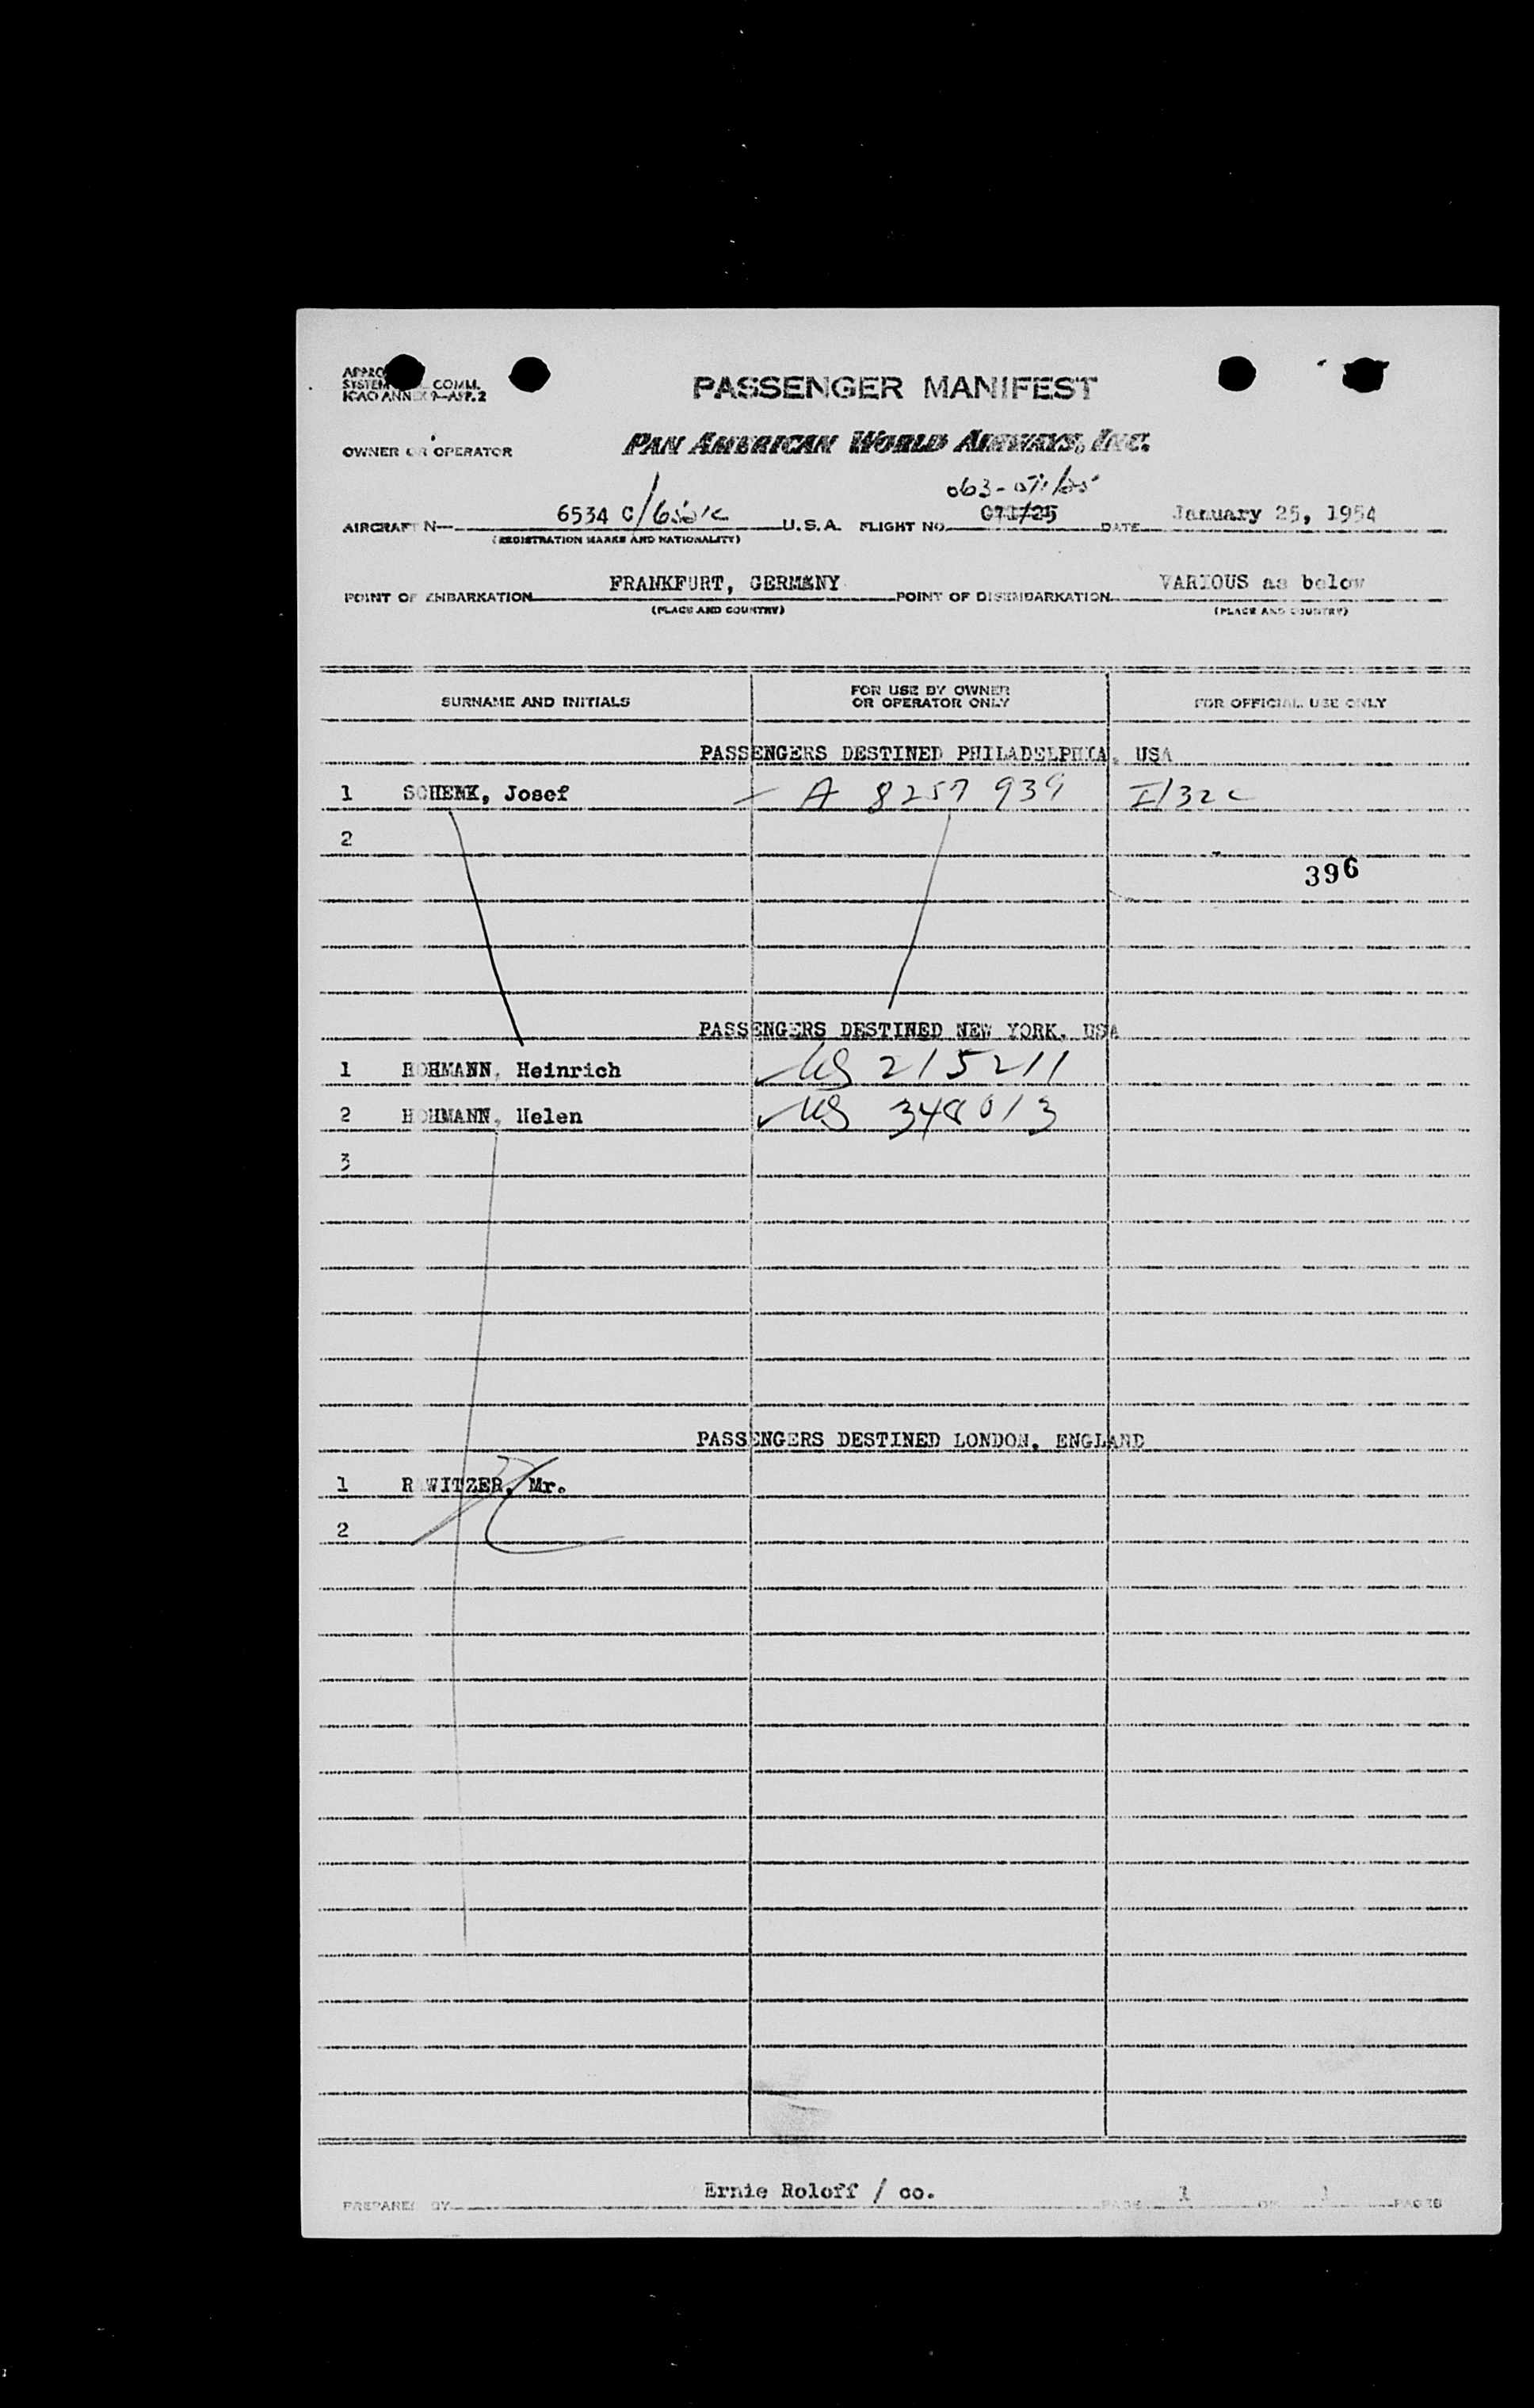 PASSENGER MANIFEST
COMM.
OWNER OR OPERATOR PAN AMERICAN WORLD AIRWAYS, INC.
063-071/25
AIRCRAFT N— 6534 C/ U.S.A. FLIGHT NO. 071/25 DATE January 25, 1954
(REGISTRATION MARKS AND NATIONALITY)
POINT OF EMBARKATION FRANKFURT, GERMANY POINT OF DISEMBARKATION VARIOUS as below
(PLACE AND COUNTRY) (PLACE AND COUNTRY)
SURNAME AND INITIALS FOR USE BY OWNER OR OPERATOR ONLY FOR OFFICIAL USE ONLY
PASSENGERS DESTINED PHILADELPHIA, USA
1 SCHENK, Josef A 8257 939 I/32c
2
396
PASSENGERS DESTINED NEW YORK, USA
1 HOHMANN, Heinrich US 215211
2 HOHMANN, Helen US 348013
3
PASSENGERS DESTINED LONDON, ENGLAND
1 RAWITZER, Mr.
2
PREPARED BY Ernie Roloff / co. PAGE 1 OF 1 PAGES